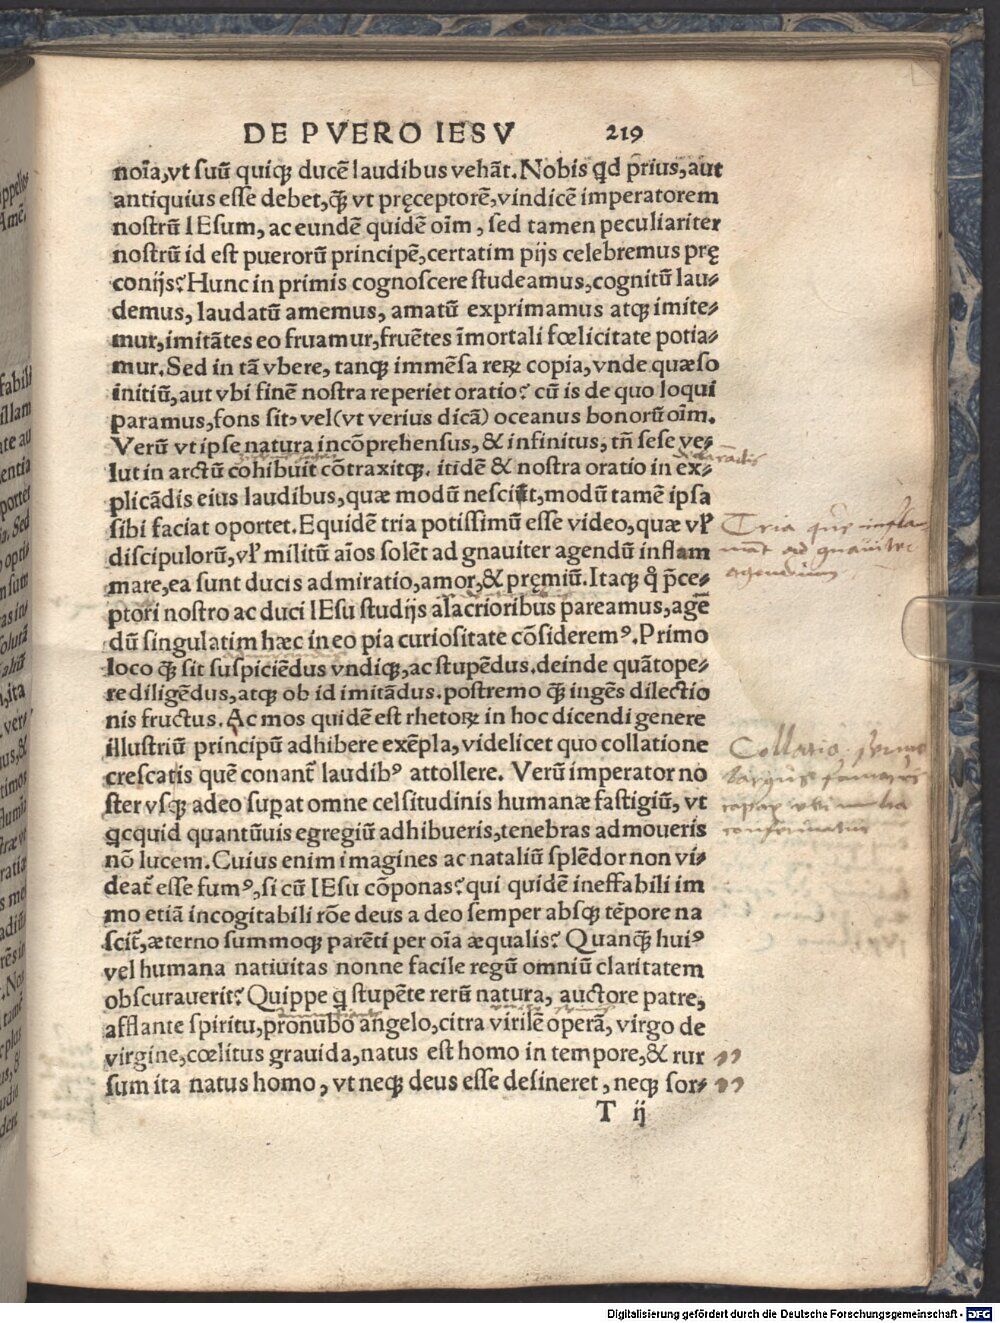 DE PVERO IESV 219
noĩa,vt ſuũ quiqꝫ ducẽ laudibus vehãt. Nobis qd prius,aut
antiquius eſſe debet,q̃ꝫ vt pręceptorẽ,vindicẽ imperatorem
noſtrũ IEſum, ac eundẽ quidẽ oĩm, ſed tamen peculiariter
noſtrũ id eſt puerorũ principẽ,certatim pijs celebremus prę
conijs? Hunc in primis cognoſcere ſtudeamus,cognitũ lau⸗
demus, laudatũ amemus, amatũ exprimamus atqꝫ imite⸗
mur,imitãtes eo fruamur,fruẽtes ĩmortali fœlicitate potia⸗
mur. Sed in tã vbere, tanqꝫ immẽſa reꝝ copia,vnde quæſo
initiũ,aut vbi finẽ noſtra reperiet oratio? cũ is de quo loqui
paramus,fons ſit, vel(vt verius dicã) oceanus bonorũ oĩm.
Verũ vt ipſe natura incõprehenſus, & infinitus, tñ ſeſe ve⸗
lut in arctũ cohibuit cõtraxitqꝫ. itidẽ & noſtra oratio in ex⸗
plicãdis eius laudibus,quæ modũ neſciat,modũ tamẽ ipſa
ſibi faciat oportet. Equidẽ tria potiſſimũ eſſe video,quæ vl̃
diſcipulorũ,vl̃ militũ aĩos ſolẽt ad gnauiter agendũ inflam
mare,ea ſunt ducis admiratio,amor,& pręmiũ. Itaqꝫ q̊ p̃ce⸗
ptori noſtro ac duci IEſu ſtudijs alacrioribus pareamus,agẽ
dũ ſingulatim hæc in eo pia curioſitate cõſideremꝰ. Primo
loco q̃ꝫ ſit ſuſpiciẽdus vndiqꝫ,ac ſtupẽdus. deinde quãtope⸗
re diligẽdus,atqꝫ ob id imitãdus. poſtremo q̃ꝫ ingẽs dilectio
nis fructus. Ac mos quidẽ eſt rhetoꝝ in hoc dicendi genere
illuſtriũ principũ adhibere exẽpla,videlicet quo collatione
creſcat is quẽ conant̃ laudibꝰ attollere. Verũ imperator no
ſter vſqꝫ adeo ſupat omne celſitudinis humanæ faſtigiũ, vt
qcquid quantũuis egregiũ adhibueris,tenebras admoueris
nõ lucem. Cuius enim imagines ac nataliũ ſplẽdor non vi⸗
deat̃ eſſe fumꝰ,ſi cũ IEſu cõponas? qui quidẽ ineffabili im
mo etiã incogitabili rõe deus a deo ſemper abſqꝫ tẽpore na
ſcit̃,æterno ſummoqꝫ parẽti per oĩa æqualis? Quanq̃ꝫ huiꝰ
vel humana natiuitas nonne facile regũ omniũ claritatem
obſcurauerit? Quippe q ſtupẽte rerũ natura, auctore patre,
afflante ſpiritu,pronubo angelo,citra virilẽ operã, virgo de
virgine,cœlitus grauida,natus eſt homo in tempore,& rur
ſum ita natus homo, vt neqꝫ deus eſſe deſineret, neqꝫ ſor⸗
T ij
Tria que infla
mãt ad gnauiter
agendum
Collatio
Digitalisierung gefördert durch die Deutsche Forschungsgemeinschaft - DFG